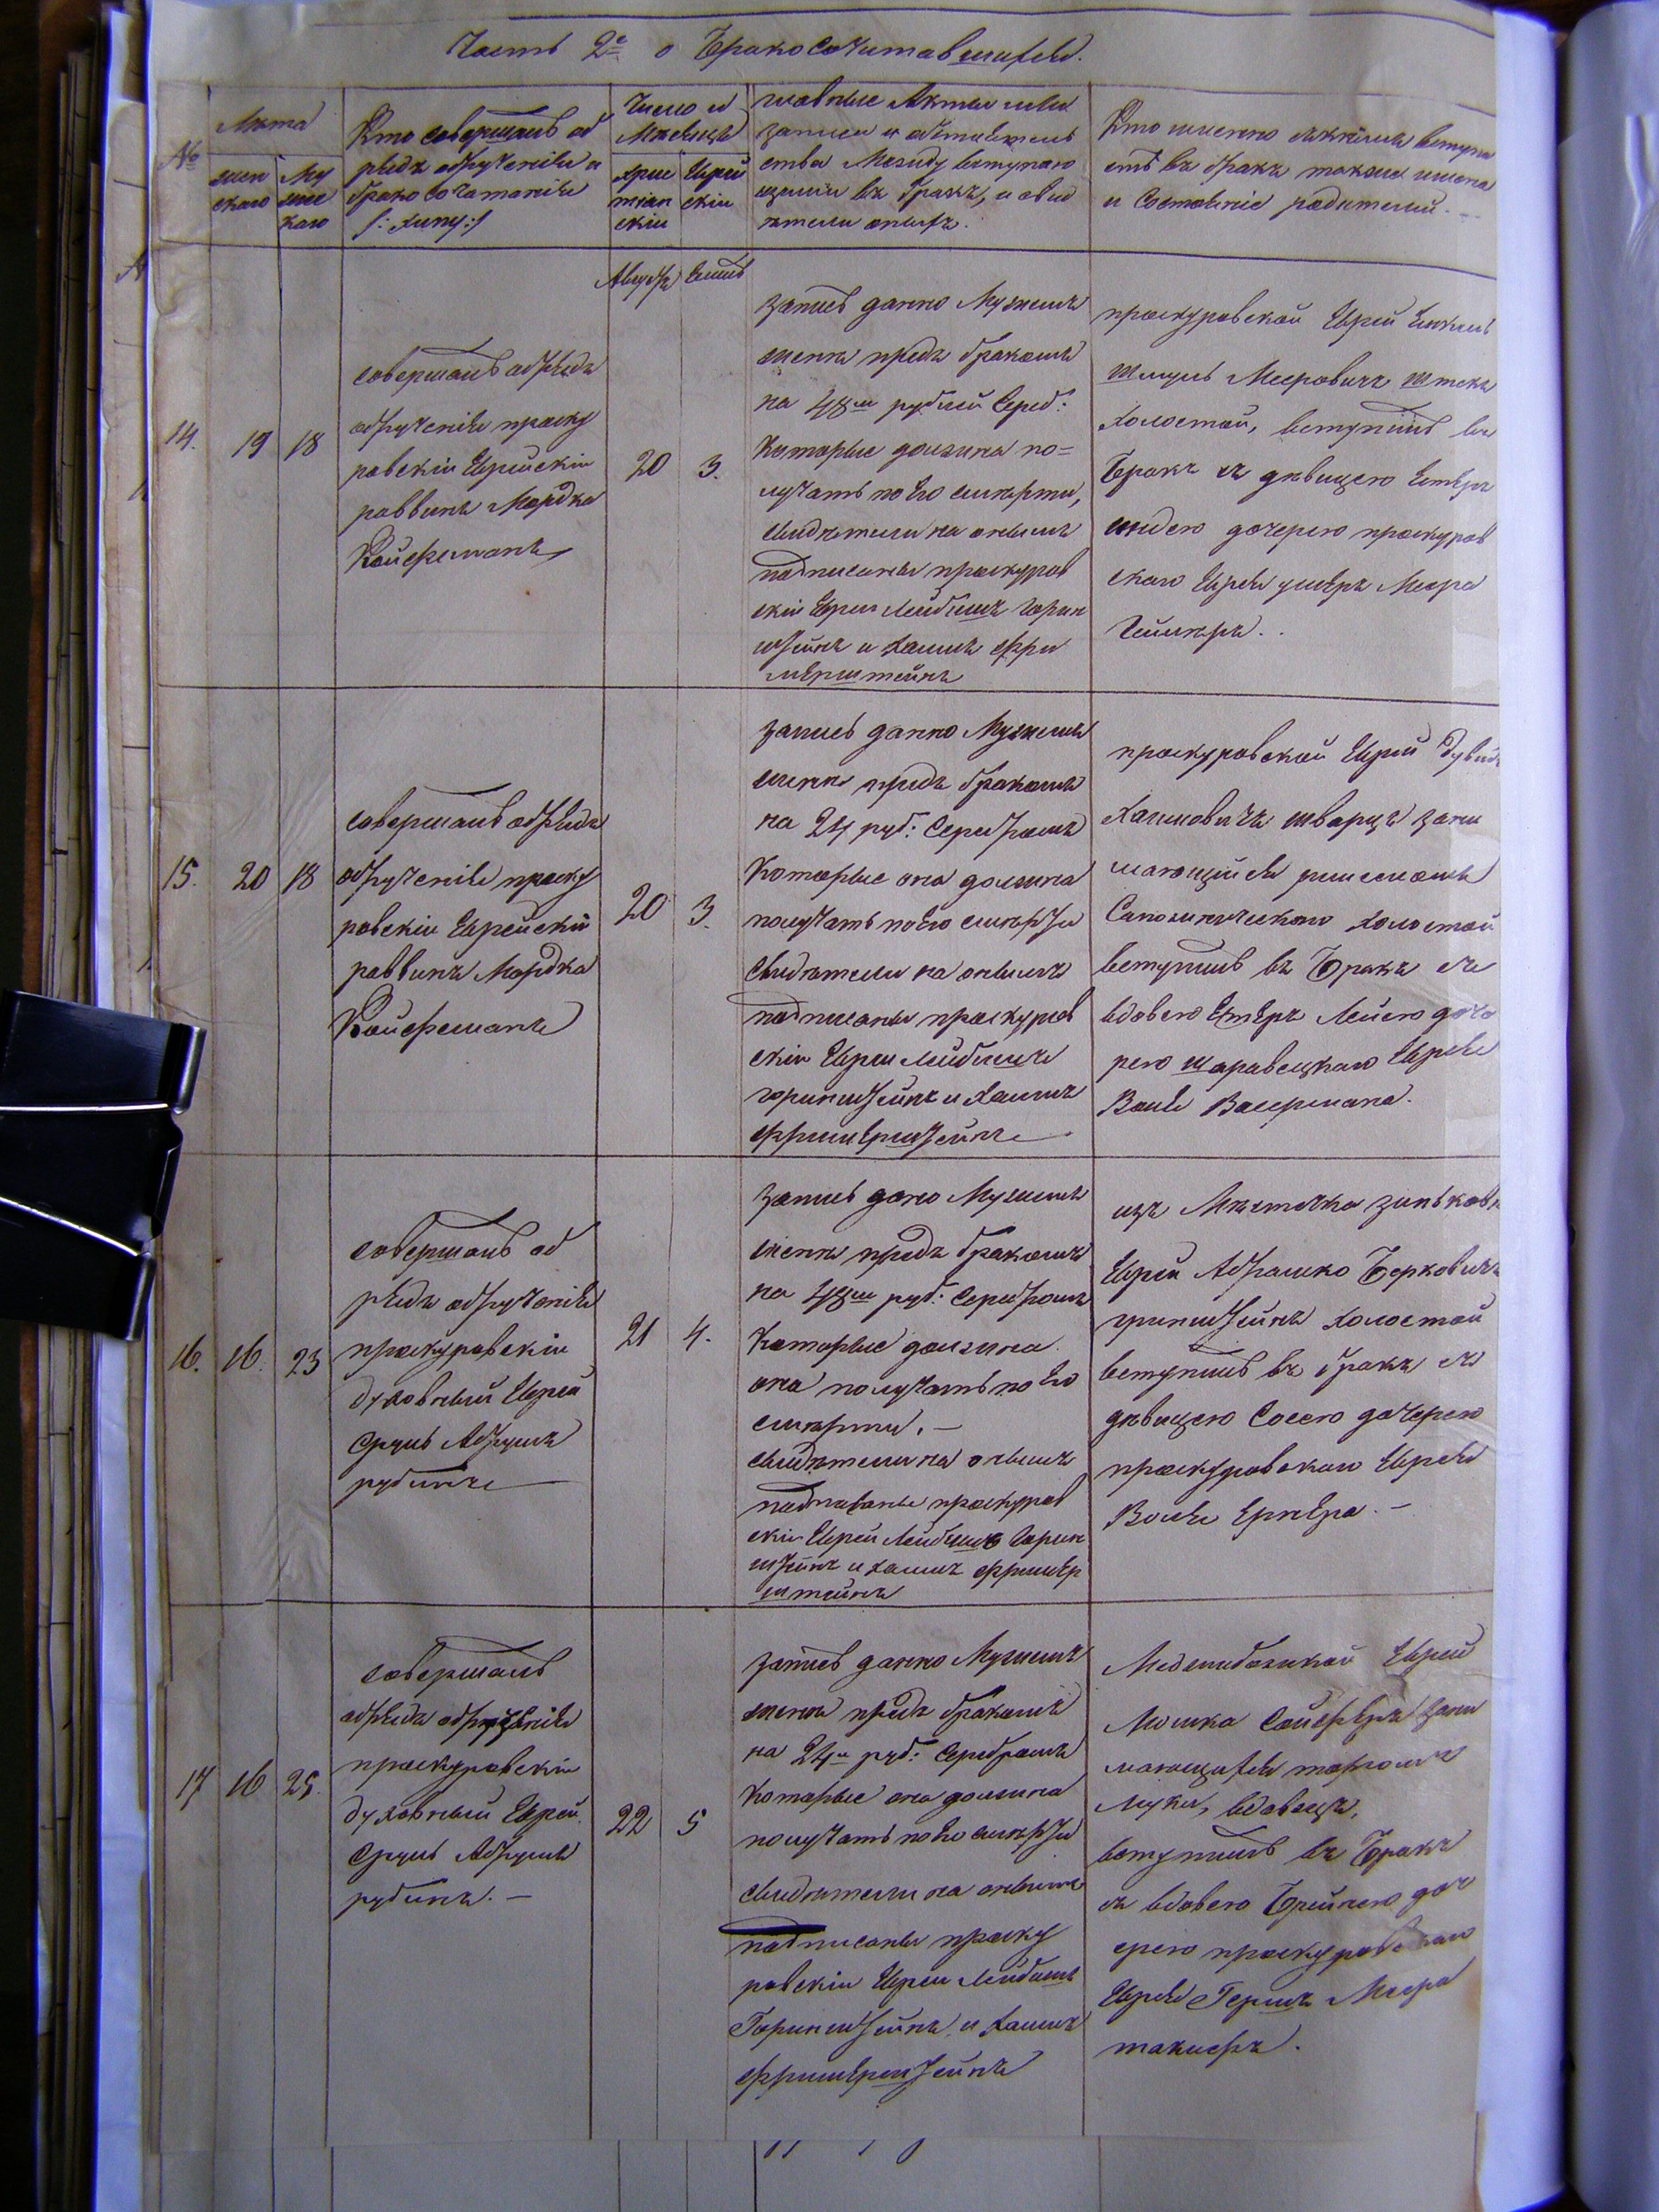 Часть 2я о Бракосочитавшихся.
№
Лѣта
жен
скаго
Му
жес
каго
Кто совершалъ об
рядъ обрученія и
бракосочитанія
/: хупу :/
Число и
Мѣсецъ
Хрис
тіан
скіи
Еврей
скіи
главные Акты или
записи и обтиватель
ства Между вступаю
щими въ бракъ, и свид
ѣтели оныхъ.
Кто именно съ кѣмъ вступа
етъ въ бракъ также имена
и Состояніе родителей.
Августъ
Елиль
14.
19
18
совершалъ обрядъ
обрученія проску
ровскіи Еврейскіи
раввинъ Мордко
Койфманъ
20
3.
запись данно Мужемъ
жены предъ бракомъ
на 48м рублей Сереб:
Которые должна по=
лучать по Его смерти,
свидѣтели на онымъ
подписаны проскуров
скіи Евреи Лейбишъ Горин
штейнъ и Хаимъ Фри
мерштейнъ
проскуровской Еврей Енкель
Шмуль Мееровичъ Штекъ
холостой, вступилъ въ
Бракъ съ дѣвицею Естеръ
индею дочерею проскуров
скаго Еврея умеръ Меера
Геймеръ.
15.
20
18
совершалъ обрядъ
обрученія проску
ровскіи Еврейскіи
раввинъ Мордко
Койфеманъ
20
3.
запись данно Мужемъ
жены предъ бракомъ
на 24 руб: Серебромъ
Которые она должна
получать по Его смерти
свидѣтели на онымъ
подписаны проскуров
скіи Евреи Лейбишъ
горинштейнъ и Хаимъ
Фримерштейнъ
проскуровской Еврей Дувидъ
Хаимовичъ шварцъ зани
мающійся ремесломъ
Сапожническимъ холостой
вступилъ въ Бракъ съ
вдовею Естеръ Лейею доче
рею шаравецкаго Еврея
Волѣ Васермана.
16.
16.
23
совершалъ об
рядъ обрученія
проскуровскіи
духовный Еврей
Сруль Абрумъ
рубинъ
21
4.
запись дано Мужемъ
жены предъ бракомъ
на 48м руб: Серебромъ
Которые должна
она получать по Его
смерти.
свидѣтели на онымъ
подписаны проскуров
скіи Евреи Лейбишъ Горин
штейнъ и Хаимъ Фример
штейнъ
изъ Мѣстечка зинькова
Еврей Абрамко Берковичъ
гринштейнъ холостой
вступилъ въ бракъ съ
дѣвицею Сосею дочерею
проскуровскаго Еврея
Волѣ Ернера.
17
16
25.
совершалъ
обрядъ обрученія
проскуровскіи
духовный Еврей
Сруль Абрумъ
рубинъ.
22
5
запись данно Мужемъ
жены предъ бракомъ
на 24м руб: Серебромъ
Которые она должна
получать по Его смерти
свидѣтели на онымъ
подписаны проску
ровскіи Евреи Лейбишъ
Горинштейнъ и Хаимъ
Фримерштейнъ
Меджибожской Еврей
Мошка Сойферъ зани
мающійся торгомъ
Муки, вдовецъ,
вступилъ въ Бракъ
съ вдовею Брейнею доч
ерею проскуровскаго
Еврея Гершъ Меера